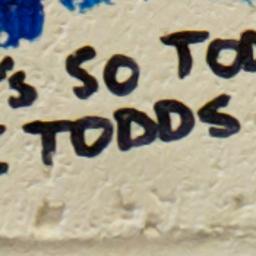 's SO TOD
TODDS